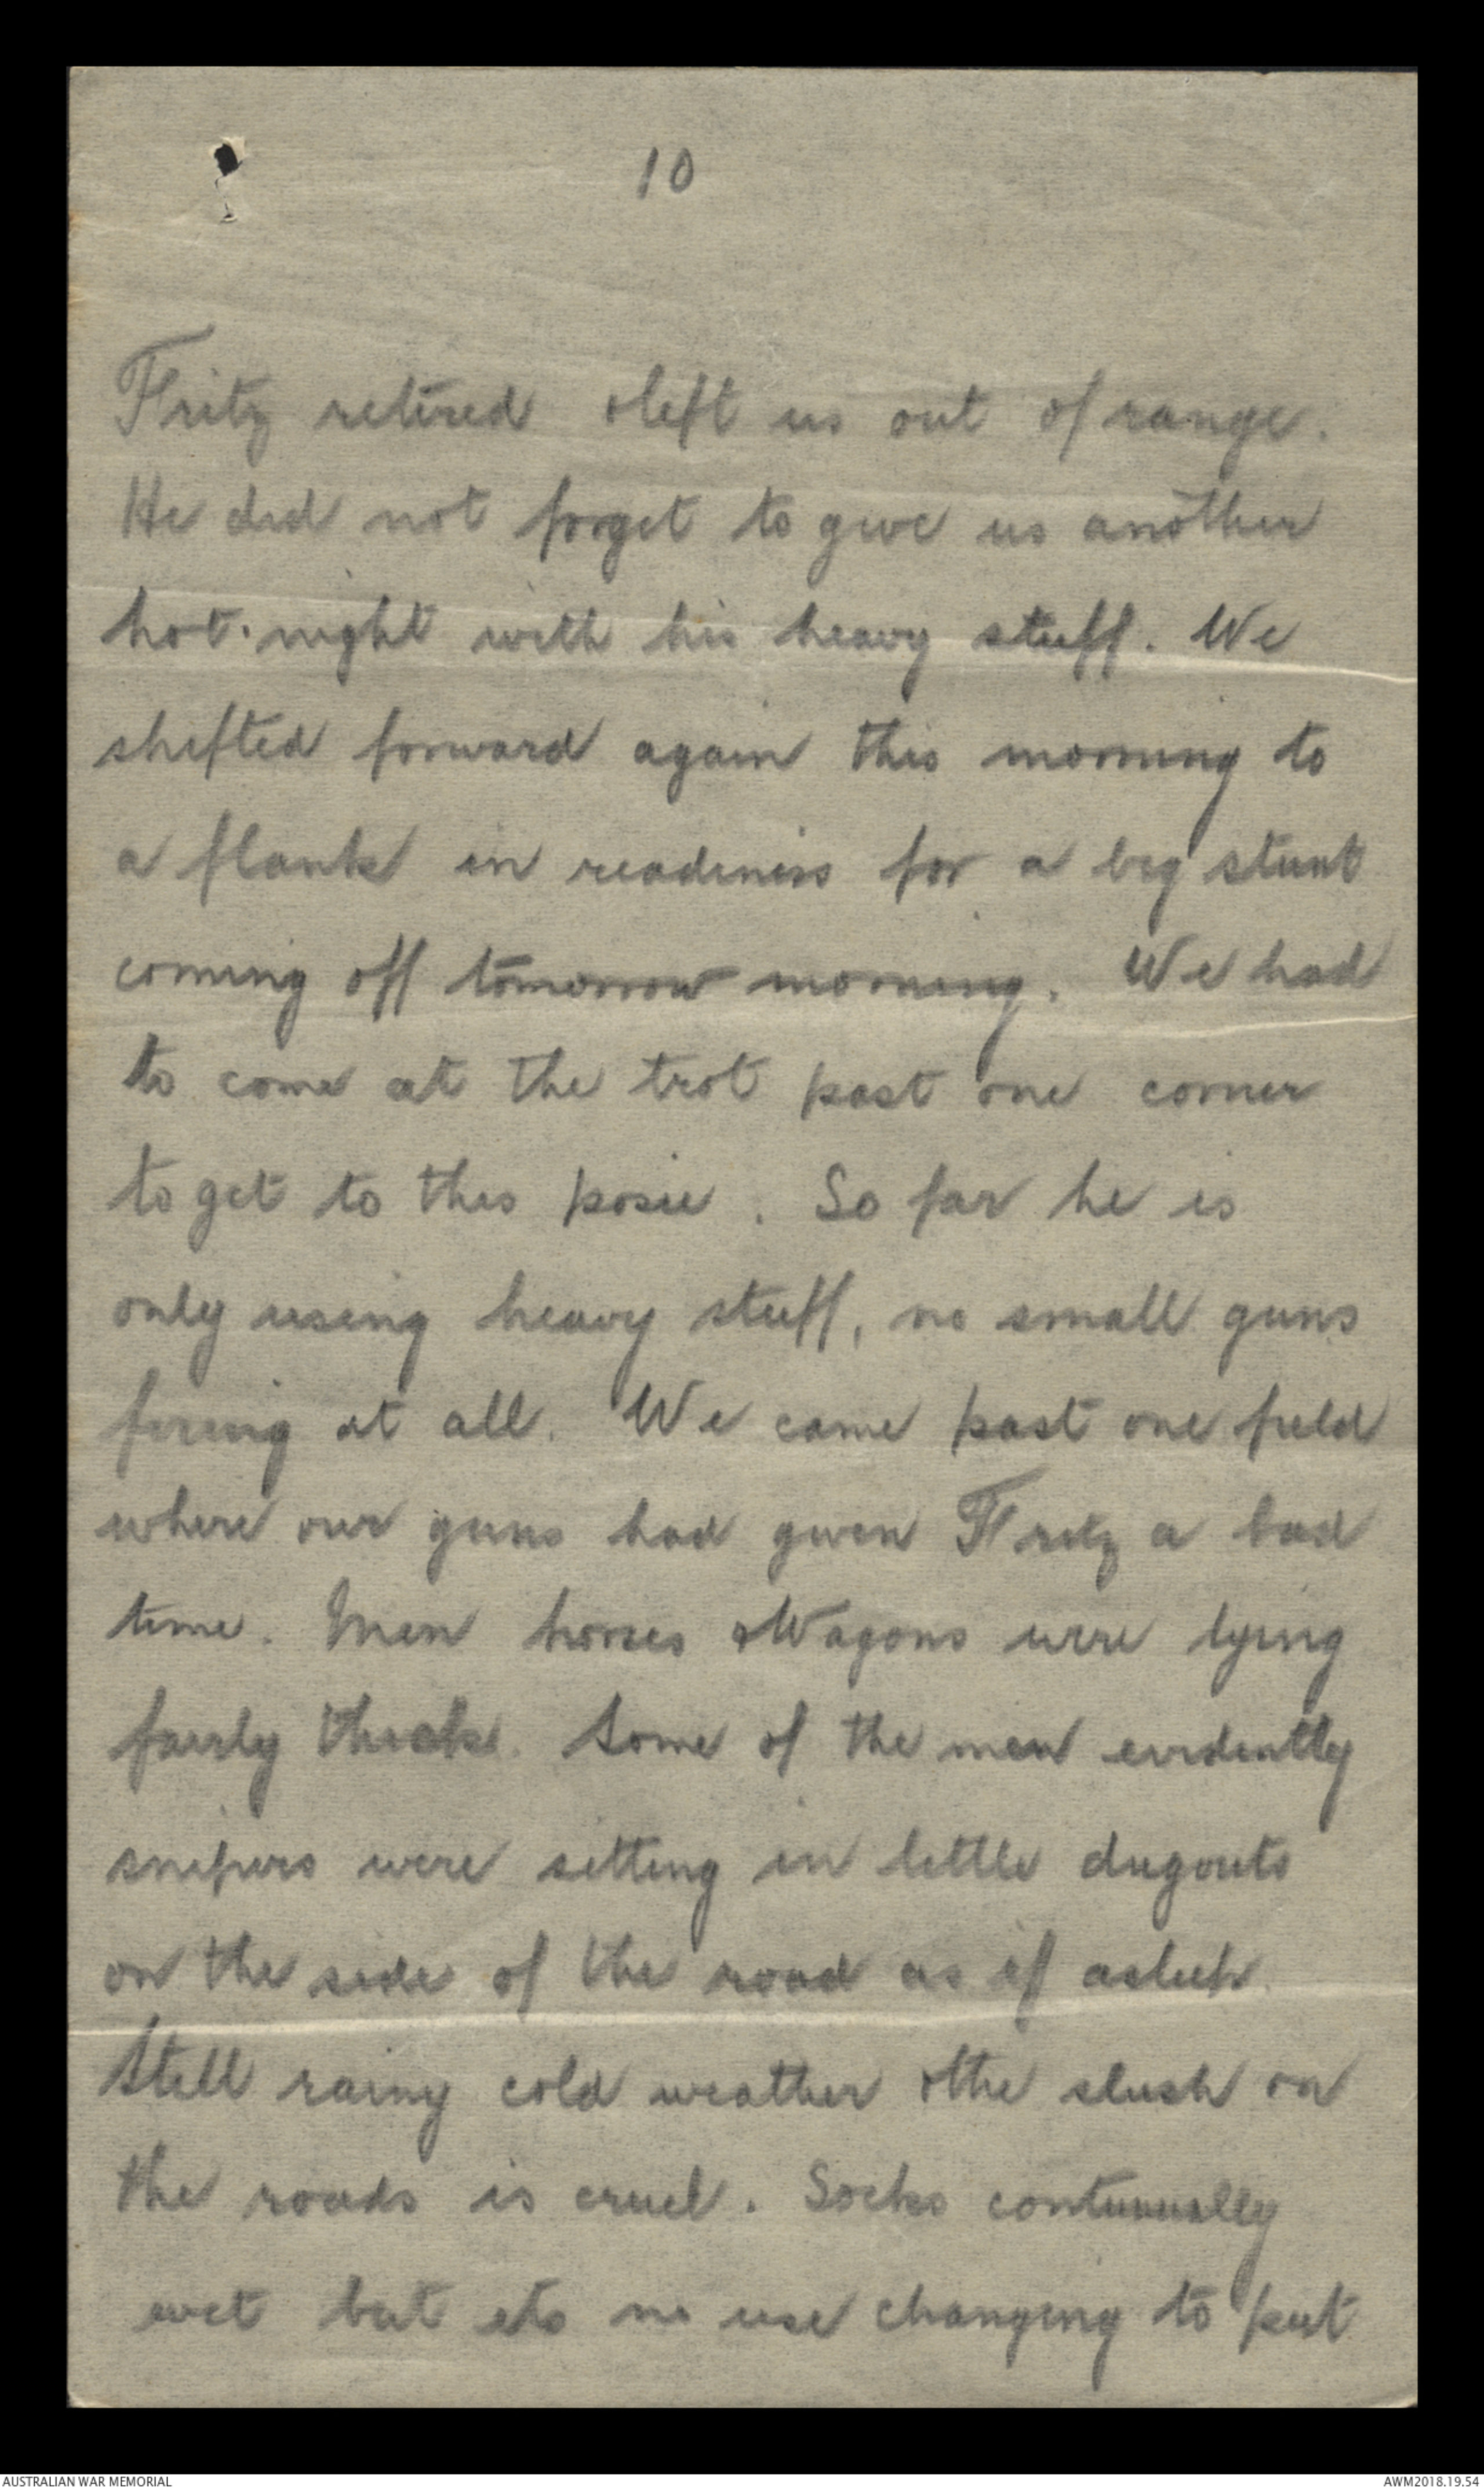 10
Fritz retired & left us out of range.
He did not forget to give us another
hot night with his heavy stuff. We
shifted forward again this morning to
a flank in readiness for a big stunt
coming off tomorrow morning. We had
to come at the trot past one corner
to get to this posie. So far he is
only using heavy stuff, no small guns
firing at all. We came past one field
where our guns had given Fritz a bad
time. Men horses & Wagons were lying
fairly thick. Some of the men evidently
snipers were sitting in little dugouts
on the side of the road as if asleep.
Still rainy cold weather & the slush on
the roads is cruel. Socks continually
wet but its no use changing to put
AUSTRALIAN WAR MEMORIAL
AWM2018.19.54